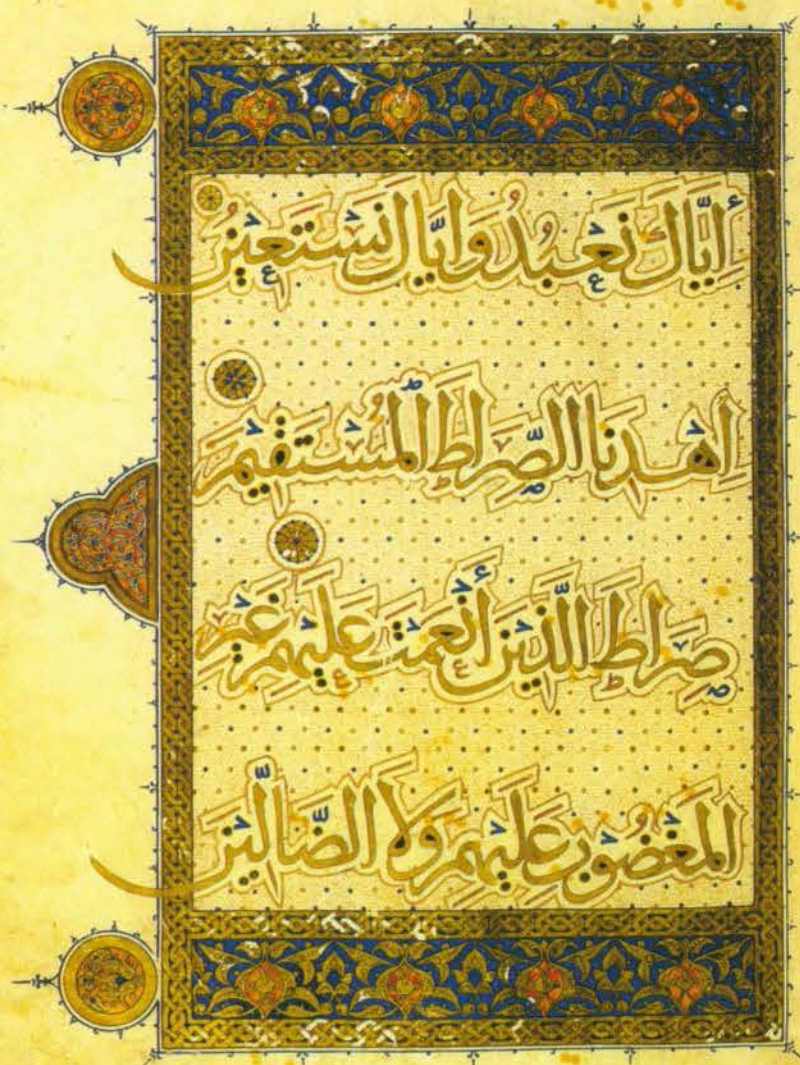 إِيَّاكَ نَعْبُدُ وَإِيَّاكَ نَسْتَعِينُ
اهْدِنَا الصِّرَاطَ الْمُسْتَقِيمَ
صِرَاطَ الَّذِينَ أَنْعَمْتَ عَلَيْهِمْ غَيْرِ
الْمَغْضُوبِ عَلَيْهِمْ وَلَا الضَّالِّينَ